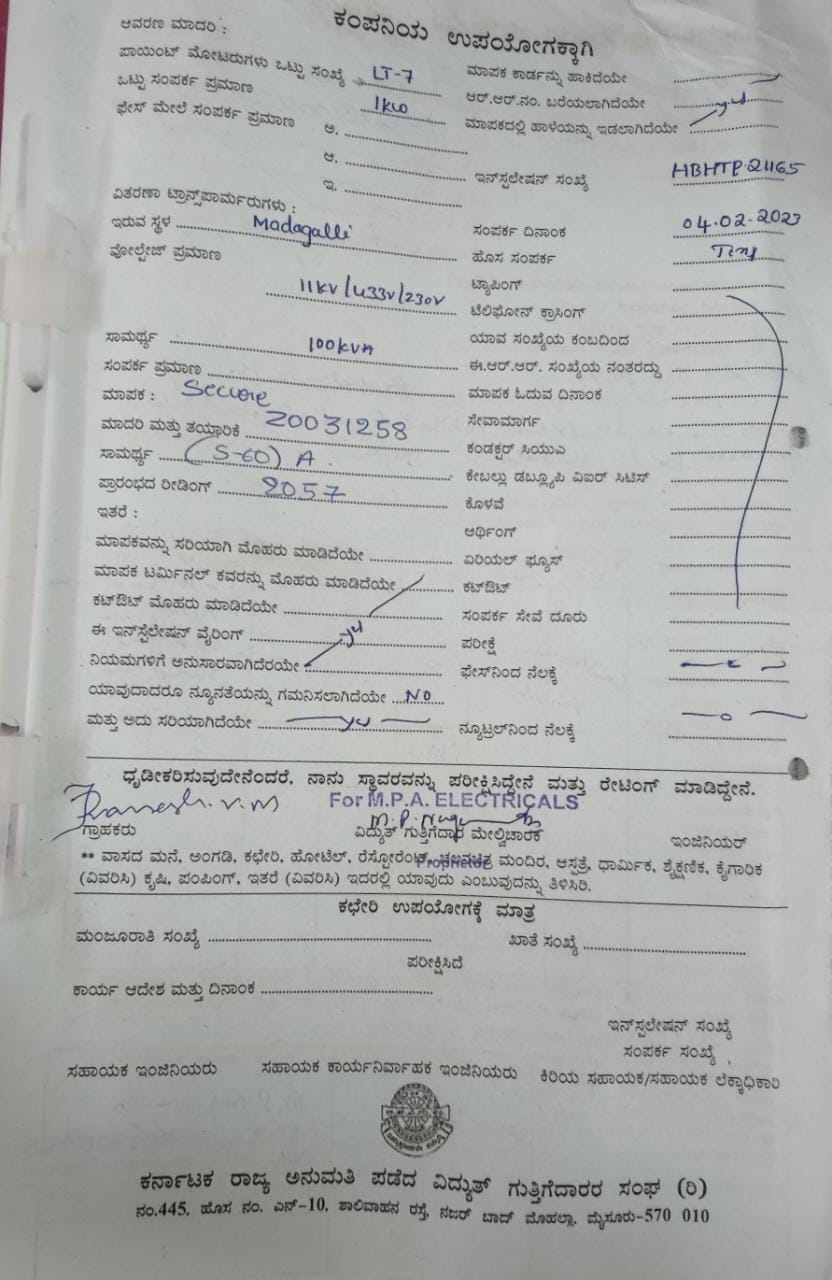 ಕಂಪನಿಯ ಉಪಯೋಗಕ್ಕಾಗಿ
ಆವರಣ ಮಾದರಿ :
ಪಾಯಿಂಟ್ ಮೋಟರುಗಳು ಒಟ್ಟು ಸಂಖ್ಯೆ LT-7
ಒಟ್ಟು ಸಂಪರ್ಕ ಪ್ರಮಾಣ 1kw
ಫೇಸ್ ಮೇಲೆ ಸಂಪರ್ಕ ಪ್ರಮಾಣ ಅ.
ಆ.
ಇ.
ವಿತರಣಾ ಟ್ರಾನ್ಸ್‌ಪಾರ್ಮರುಗಳು :
ಇರುವ ಸ್ಥಳ Madagalli
ವೋಲ್ಟೇಜ್ ಪ್ರಮಾಣ
11KV/433V/230V
ಸಾಮರ್ಥ್ಯ 100KVA
ಸಂಪರ್ಕ ಪ್ರಮಾಣ
ಮಾಪಕ : Secure
ಮಾದರಿ ಮತ್ತು ತಯ್ಯಾರಿಕೆ 20031258
ಸಾಮರ್ಥ್ಯ (5-60) A.
ಪ್ರಾರಂಭದ ರೀಡಿಂಗ್ 2057
ಇತರೆ :
ಮಾಪಕವನ್ನು ಸರಿಯಾಗಿ ಮೊಹರು ಮಾಡಿದೆಯೇ
ಮಾಪಕ ಟರ್ಮಿನಲ್ ಕವರನ್ನು ಮೊಹರು ಮಾಡಿದೆಯೇ
ಕಟ್‌ಔಟ್ ಮೊಹರು ಮಾಡಿದೆಯೇ
ಈ ಇನ್‌ಸ್ಟೆಲೇಷನ್ ವೈರಿಂಗ್
ನಿಯಮಗಳಿಗೆ ಅನುಸಾರವಾಗಿದೆರಯೇ
ಯಾವುದಾದರೂ ನ್ಯೂನತೆಯನ್ನು ಗಮನಿಸಲಾಗಿದೆಯೇ NO
ಮತ್ತು ಅದು ಸರಿಯಾಗಿದೆಯೇ
ಮಾಪಕ ಕಾರ್ಡನ್ನು ಹಾಕಿದೆಯೇ
ಆರ್.ಆರ್.ನಂ. ಬರೆಯಲಾಗಿದೆಯೇ
ಮಾಪಕದಲ್ಲಿ ಹಾಳೆಯನ್ನು ಇಡಲಾಗಿದೆಯೇ
ಇನ್‌ಸ್ಟಲೇಷನ್ ಸಂಖ್ಯೆ HBHTP 21165
ಸಂಪರ್ಕ ದಿನಾಂಕ 04.02.2023
ಹೊಸ ಸಂಪರ್ಕ
ಟ್ಯಾಪಿಂಗ್
ಟೆಲಿಫೋನ್ ಕ್ರಾಸಿಂಗ್
ಯಾವ ಸಂಖ್ಯೆಯ ಕಂಬದಿಂದ
ಈ.ಆರ್.ಆರ್. ಸಂಖ್ಯೆಯ ನಂತರದ್ದು
ಮಾಪಕ ಓದುವ ದಿನಾಂಕ
ಸೇವಾಮಾರ್ಗ
ಕಂಡಕ್ಟರ್ ಸಿಯುಎ
ಕೇಬಲ್ಲು ಡಬ್ಲ್ಯೂಪಿ ವಿಐರ್ ಸಿಟಿಸ್
ಕೊಳವೆ
ಆರ್ಥಿಂಗ್
ಏರಿಯಲ್ ಫ್ಯೂಸ್
ಕಟ್‌ಔಟ್
ಸಂಪರ್ಕ ಸೇವೆ ದೂರು
ಪರೀಕ್ಷೆ
ಫೇಸ್‌ನಿಂದ ನೆಲಕ್ಕೆ
ನ್ಯೂಟ್ರಲ್‌ನಿಂದ ನೆಲಕ್ಕೆ
ಧೃಡೀಕರಿಸುವುದೇನೆಂದರೆ, ನಾನು ಸ್ಥಾವರವನ್ನು ಪರೀಕ್ಷಿಸಿದ್ದೇನೆ ಮತ್ತು ರೇಟಿಂಗ್ ಮಾಡಿದ್ದೇನೆ.
For M.P.A. ELECTRICALS
ಗ್ರಾಹಕರು ವಿದ್ಯುತ್ ಗುತ್ತಿಗೆದಾರ ಮೇಲ್ವಿಚಾರಕ ಇಂಜಿನಿಯರ್
Proprietor
** ವಾಸದ ಮನೆ, ಅಂಗಡಿ, ಕಛೇರಿ, ಹೋಟೆಲ್, ರೆಸ್ಟೋರೆಂಟ್, ಚಲನಚಿತ್ರ ಮಂದಿರ, ಆಸ್ಪತ್ರೆ, ಧಾರ್ಮಿಕ, ಶೈಕ್ಷಣಿಕ, ಕೈಗಾರಿಕ
(ವಿವರಿಸಿ) ಕೃಷಿ, ಪಂಪಿಂಗ್, ಇತರೆ (ವಿವರಿಸಿ) ಇದರಲ್ಲಿ ಯಾವುದು ಎಂಬುವುದನ್ನು ತಿಳಿಸಿರಿ.
ಕಛೇರಿ ಉಪಯೋಗಕ್ಕೆ ಮಾತ್ರ
ಮಂಜೂರಾತಿ ಸಂಖ್ಯೆ ಖಾತೆ ಸಂಖ್ಯೆ
ಪರೀಕ್ಷಿಸಿದೆ
ಕಾರ್ಯ ಆದೇಶ ಮತ್ತು ದಿನಾಂಕ
ಇನ್‌ಸ್ಟಲೇಷನ್ ಸಂಖ್ಯೆ
ಸಂಪರ್ಕ ಸಂಖ್ಯೆ
ಸಹಾಯಕ ಇಂಜಿನಿಯರು ಸಹಾಯಕ ಕಾರ್ಯನಿರ್ವಾಹಕ ಇಂಜಿನಿಯರು ಕಿರಿಯ ಸಹಾಯಕ/ಸಹಾಯಕ ಲೆಕ್ಕಾಧಿಕಾರಿ
ಕರ್ನಾಟಕ ರಾಜ್ಯ ಅನುಮತಿ ಪಡೆದ ವಿದ್ಯುತ್ ಗುತ್ತಿಗೆದಾರರ ಸಂಘ (ರಿ)
ನಂ.445, ಹೊಸ ನಂ. ಎನ್-10, ಶಾಲಿವಾಹನ ರಸ್ತೆ, ನಜರ್ ಬಾದ್ ಮೊಹಲ್ಲಾ, ಮೈಸೂರು-570 010